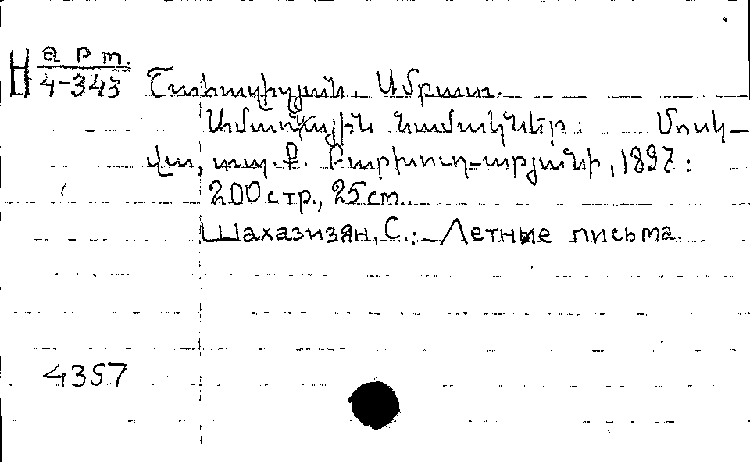 H арт.
4-343 Շահազիզյան, Սմբատ.
Ամառային նամակներ. Մոսկ-
վա, տպ. Բարխուդարյանի, 1897:
200 стр., 25 cm.
Шахазизян, С.: Летные письма.
4357